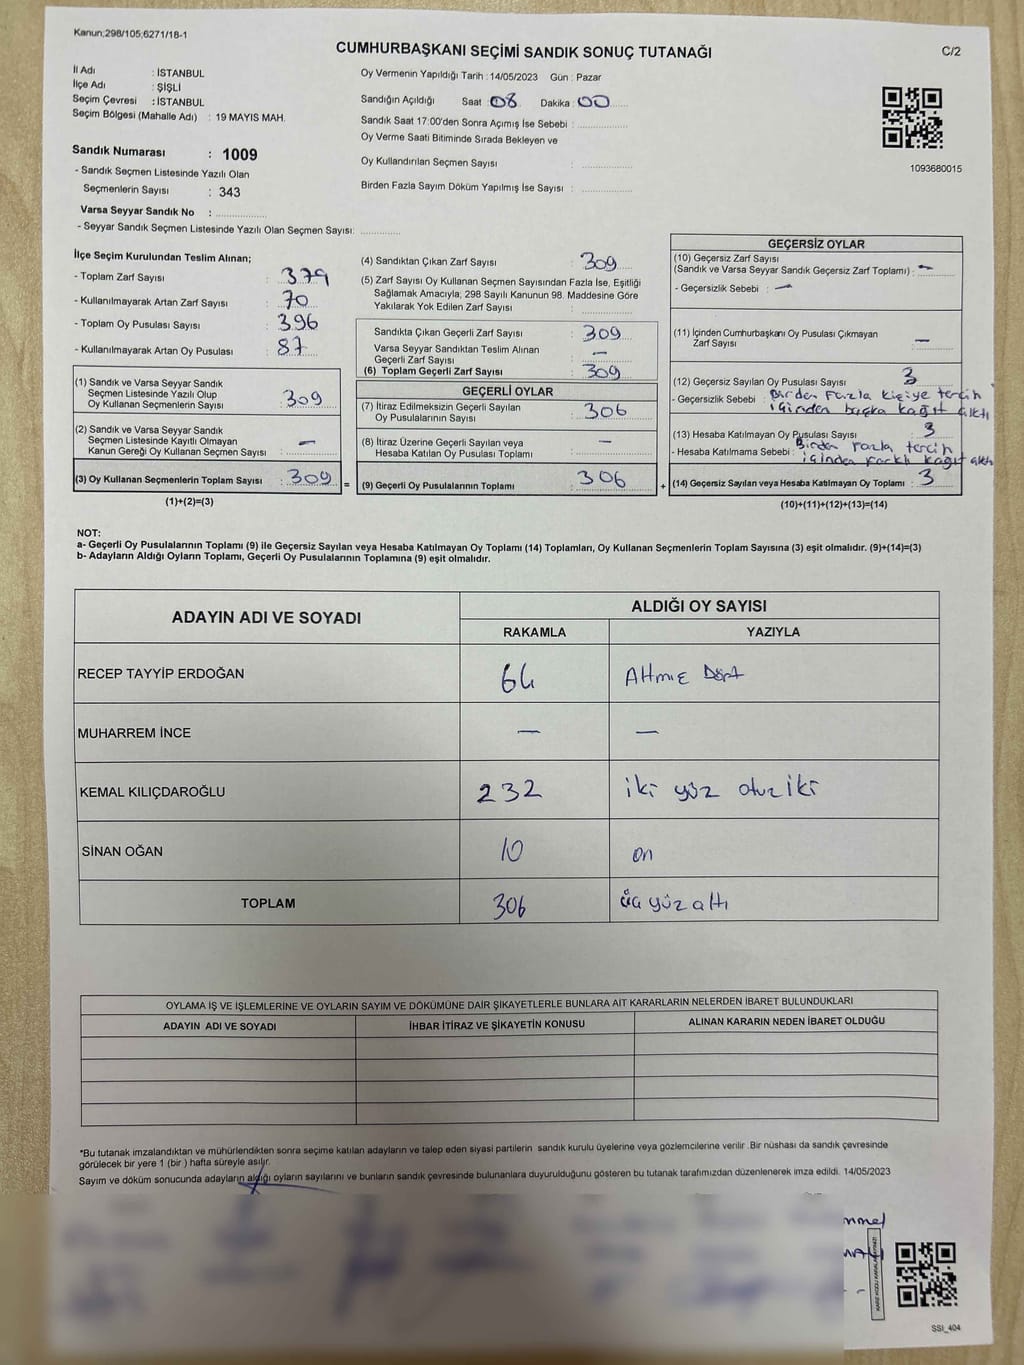 Kanun;298/105;6271/18-1
CUMHURBAŞKANI SEÇİMİ SANDIK SONUÇ TUTANAĞI
C/2
İl Adı : İSTANBUL
İlçe Adı : ŞİŞLİ
Seçim Çevresi : İSTANBUL
Seçim Bölgesi (Mahalle Adı) : 19 MAYIS MAH.
Sandık Numarası : 1009
- Sandık Seçmen Listesinde Yazılı Olan
Seçmenlerin Sayısı : 343
Varsa Seyyar Sandık No :
- Seyyar Sandık Seçmen Listesinde Yazılı Olan Seçmen Sayısı:
Oy Vermenin Yapıldığı Tarih : 14/05/2023 Gün : Pazar
Sandığın Açıldığı Saat : 08 Dakika : 00
Sandık Saat 17:00'den Sonra Açımış İse Sebebi :
Oy Verme Saati Bitiminde Sırada Bekleyen ve
Oy Kullandırılan Seçmen Sayısı :
Birden Fazla Sayım Döküm Yapılmış İse Sayısı :
1093680015
İlçe Seçim Kurulundan Teslim Alınan;
- Toplam Zarf Sayısı : 379
- Kullanılmayarak Artan Zarf Sayısı : 70
- Toplam Oy Pusulası Sayısı : 396
- Kullanılmayarak Artan Oy Pusulası : 87
(1) Sandık ve Varsa Seyyar Sandık
Seçmen Listesinde Yazılı Olup
Oy Kullanan Seçmenlerin Sayısı : 309
(2) Sandık ve Varsa Seyyar Sandık
Seçmen Listesinde Kayıtlı Olmayan
Kanun Gereği Oy Kullanan Seçmen Sayısı : —
(3) Oy Kullanan Seçmenlerin Toplam Sayısı : 309 =
(1)+(2)=(3)
(4) Sandıktan Çıkan Zarf Sayısı : 309
(5) Zarf Sayısı Oy Kullanan Seçmen Sayısından Fazla İse, Eşitliği
Sağlamak Amacıyla; 298 Sayılı Kanunun 98. Maddesine Göre
Yakılarak Yok Edilen Zarf Sayısı :
Sandıkta Çıkan Geçerli Zarf Sayısı : 309
Varsa Seyyar Sandıktan Teslim Alınan
Geçerli Zarf Sayısı : —
(6) Toplam Geçerli Zarf Sayısı : 309
GEÇERLİ OYLAR
(7) İtiraz Edilmeksizin Geçerli Sayılan
Oy Pusulalarının Sayısı : 306
(8) İtiraz Üzerine Geçerli Sayılan veya
Hesaba Katılan Oy Pusulası Toplamı : —
(9) Geçerli Oy Pusulalarının Toplamı : 306 +
GEÇERSİZ OYLAR
(10) Geçersiz Zarf Sayısı
(Sandık ve Varsa Seyyar Sandık Geçersiz Zarf Toplamı) : —
- Geçersizlik Sebebi : —
(11) İçinden Cumhurbaşkanı Oy Pusulası Çıkmayan
Zarf Sayısı : —
(12) Geçersiz Sayılan Oy Pusulası Sayısı : 3
- Geçersizlik Sebebi : Birden Fazla kişiye tercih
içinden başka kağıt çıktı
(13) Hesaba Katılmayan Oy Pusulası Sayısı : 3
- Hesaba Katılmama Sebebi : Birden fazla tercih
içinden farklı kağıt çıktı
(14) Geçersiz Sayılan veya Hesaba Katılmayan Oy Toplamı : 3
(10)+(11)+(12)+(13)=(14)
NOT:
a- Geçerli Oy Pusulalarının Toplamı (9) ile Geçersiz Sayılan veya Hesaba Katılmayan Oy Toplamı (14) Toplamları, Oy Kullanan Seçmenlerin Toplam Sayısına (3) eşit olmalıdır. (9)+(14)=(3)
b- Adayların Aldığı Oyların Toplamı, Geçerli Oy Pusulalarının Toplamına (9) eşit olmalıdır.
ADAYIN ADI VE SOYADI ALDIĞI OY SAYISI
RAKAMLA YAZIYLA
RECEP TAYYİP ERDOĞAN 64 Altmış Dört
MUHARREM İNCE — —
KEMAL KILIÇDAROĞLU 232 iki yüz otuz iki
SİNAN OĞAN 10 on
TOPLAM 306 üç yüz altı
OYLAMA İŞ VE İŞLEMLERİNE VE OYLARIN SAYIM VE DÖKÜMÜNE DAİR ŞİKAYETLERLE BUNLARA AİT KARARLARIN NELERDEN İBARET BULUNDUKLARI
ADAYIN ADI VE SOYADI İHBAR İTİRAZ VE ŞİKAYETİN KONUSU ALINAN KARARIN NEDEN İBARET OLDUĞU
*Bu tutanak imzalandıktan ve mühürlendikten sonra seçime katılan adayların ve talep eden siyasi partilerin sandık kurulu üyelerine veya gözlemcilerine verilir .Bir nüshası da sandık çevresinde
görülecek bir yere 1 (bir ) hafta süreyle asılır.
Sayım ve döküm sonucunda adayların aldığı oyların sayılarını ve bunların sandık çevresinde bulunanlara duyurulduğunu gösteren bu tutanak tarafımızdan düzenlenerek imza edildi. 14/05/2023
SSI_404